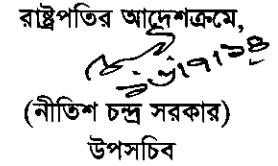 রাষ্ট্রপতির আদেশক্রমে,
(নীতিশ চন্দ্র সরকার)
উপসচিব